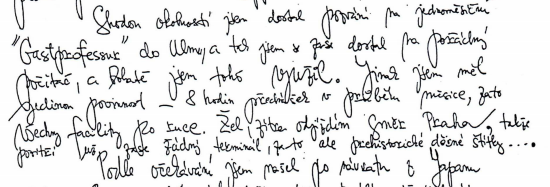 Shodou okolností jsem dostal pozvání na jednoměsíční
"Gastprofessur" do Ulmu, a teď jsem se zase dostal na pořádný
počítač, a bohatě jsem toho využil. Jinak jsem měl
jedinou povinnost – 8 hodin přednášek v průběhu měsíce, zato
všechny facility po ruce. Žel, zítra odjíždím směr Praha, takže
už zase žádný terminál, zato ale prehistorické děsné štítky....
Podle očekávání jsem našel po návratu z Japanu